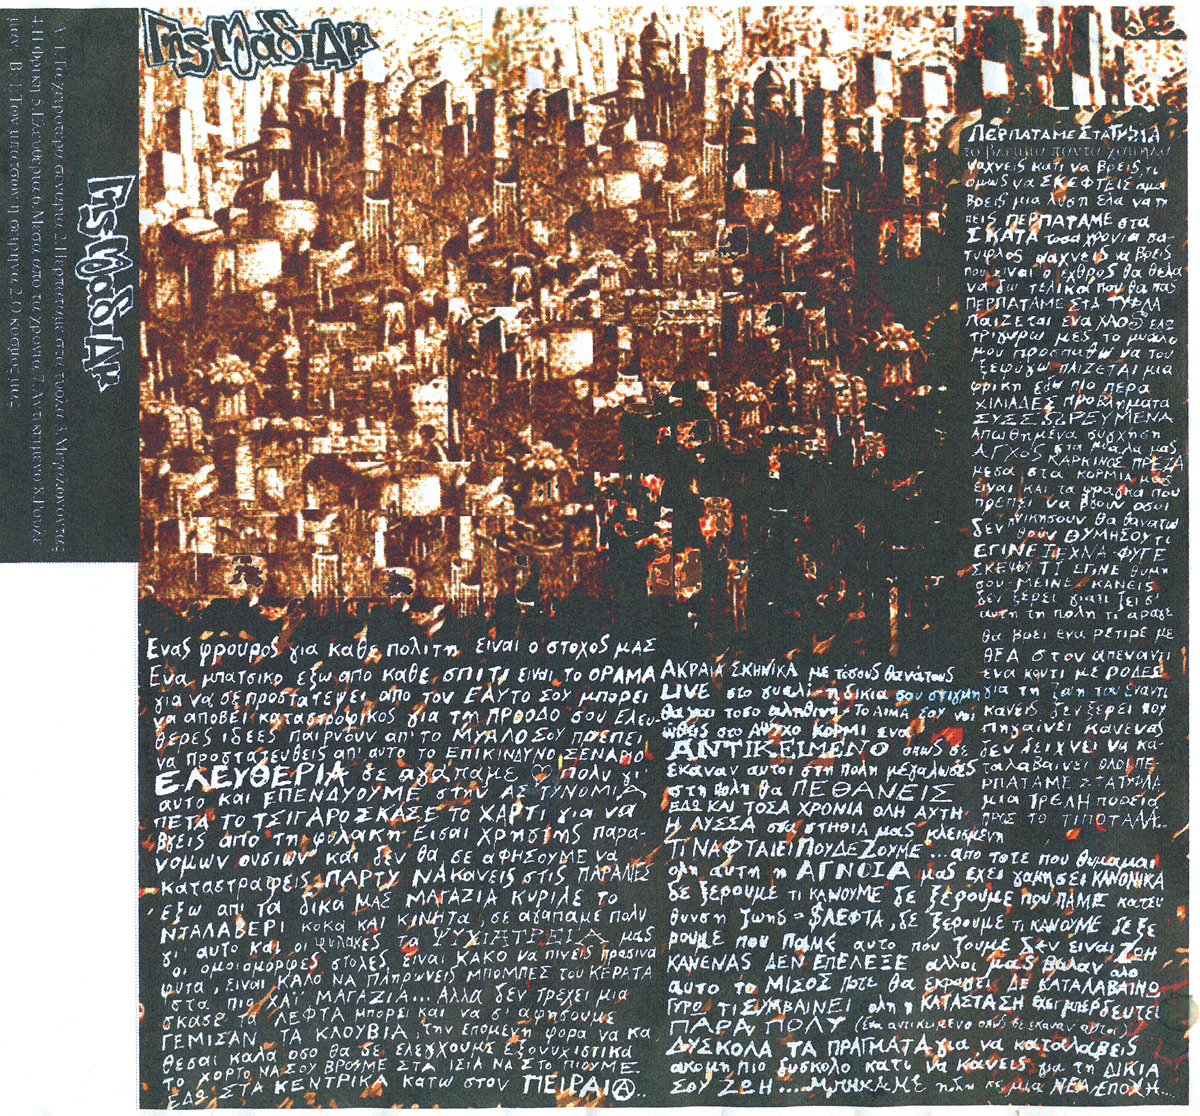 Γης Μαδιάμ
Γης Μαδιάμ
Α. 1. Το χειροτερο σεναριο 2. Περπαταμε στα τυφλα 3. Μεγαλωνοντας
4. Η φρικη 5. Ελευθερια 6. Μεσα απο τα χρονια 7. Αντικειμενο 8.
Β. 1. 2. Ο κοσμος μας
ΠΕΡΠΑΤΑΜΕ ΣΤΑ ΤΥΦΛΑ
το βλεμμα παντα χαμηλα
ψαχνεις κατι να βρεις, τι
ομως να ΣΚΕΦΤΕΙΣ αμα
βρεις μια λυση ελα να τη
πεις ΠΕΡΠΑΤΑΜΕ στα
ΣΚΑΤΑ τοσα χρονια σα
τυφλος ψαχνεις να βρεις
που ειναι ο εχθρος θα θελα
να δω τελικα που θα πας
ΠΕΡΠΑΤΑΜΕ ΣΤΑ ΤΥΦΛΑ
Παιζεται ενα ΧΑΟΣ εδω
τριγυρω μες το μυαλο
μου προσπαθω να του
ξεφυγω ΠΑΙΖΕΤΑΙ μια
φρικη εδω πιο περα
ΧΙΛΙΑΔΕΣ ΠΡΟΒΛΗΜΑΤΑ
ΣΥΣΣΩΡΕΥΜΕΝΑ
Απωθημενα συγχηση
ΑΓΧΟΣ στα μυαλα μας
ΚΑΡΚΙΝΟΣ ΠΡΕΖΑ
μεσα στα κορμια μας
ειναι και τα φραγκα που
πρεπει να βγουν οσοι
δεν νικησουν θα θανατω
θουν ΘΥΜΗΣΟΥ τι
ΕΓΙΝΕ ΞΕΧΝΑ ΦΥΓΕ
ΣΚΕΨΟΥ ΤΙ ΕΓΙΝΕ θυμη
σου ΜΕΙΝΕ ΚΑΝΕΙΣ
δεν ξερει γιατι ζει σ'
αυτη τη πολη τι αραγε
θα βρει ενα ρετιρε με
ΘΕΑ στον απεναντι
ενα κουτι με ΡΟΔΕΣ
για τη ζωη του εναντι
κανεις δεν ξερει που
πηγαινει κανενας
δεν δειχνει να κα-
ταλαβαινει ΟΛΟΙ ΠΕ-
ΡΠΑΤΑΜΕ ΣΤΑ ΤΥΦΛΑ
μια ΤΡΕΛΗ πορεια
προς το ΤΙΠΟΤΑ ΑΑ..
Ενας φρουρος για καθε πολιτη ειναι ο στοχος μας
Ενα μπατσικο εξω απο καθε ΣΠΙΤΙ ειναι το ΟΡΑΜΑ
για να σε προστατεψει απο τον ΕΑΥΤΟ ΣΟΥ μπορει
να αποβει καταστροφικος για τη ΠΡΟΟΔΟ σου Ελευ-
θερες ιδεες παιρνουν απ' το ΜΥΑΛΟ ΣΟΥ ΠΡΕΠΕΙ
να προστατευθεις απ' αυτο το ΕΠΙΚΙΝΔΥΝΟ ΣΕΝΑΡΙΟ
ΕΛΕΥΘΕΡΙΑ σε αγαπαμε ♡ πολυ γι'
αυτο και ΕΠΕΝΔΥΟΥΜΕ στην ΑΣΤΥΝΟΜΙΑ
ΠΕΤΑ ΤΟ ΤΣΙΓΑΡΟ ΣΚΑΣΕ ΤΟ ΧΑΡΤΙ για να
βγεις απο τη φυλακη Εισαι χρηστης παρα-
νομων ουσιων και δεν θα σε ΑΦΗΣΟΥΜΕ να
καταστραφεις, ΠΑΡΤΥ ΝΑ κανεις στις ΠΑΡΑΛΙΕΣ
εξω απ' τα δικα ΜΑΣ ΜΑΓΑΖΙΑ ΚΥΡΙΛΕ το
ΝΤΑΛΑΒΕΡΙ κοκα και ΚΙΝΗΤΑ, σε αγαπαμε πολυ
γι' αυτο και οι φυλακες τα ΨΥΧΙΑΤΡΕΙΑ μας
οι ομοιομορφες στολες ειναι ΚΑΚΟ να πινεις πρασινα
φυτα, ειναι ΚΑΛΟ ΝΑ ΠΛΗΡΩΝΕΙΣ ΜΠΟΜΠΕΣ του ΚΕΡΑΤΑ
στα πιο ΧΑΪ ΜΑΓΑΖΙΑ... Αλλα δεν τρεχει μια
σκασε τα ΛΕΦΤΑ μπορει και να σ' αφησουμε
ΓΕΜΙΣΑΝ ΤΑ ΚΛΟΥΒΙΑ, την επομενη φορα να κα
θεσαι καλα οσο θα σε ελεγχουμε εξονυχιστικα
το ΧΟΡΤΟ ΝΑ ΣΟΥ ΒΡΟΥΜΕ ΣΤΑ ΙΣΙΑ ΝΑ ΣΤΟ ΠΙΟΥΜΕ
ΕΔΩ ΣΤΑ ΚΕΝΤΡΙΚΑ κατω στον ΠΕΙΡΑΙΑ..
ΑΚΡΑΙΑ ΣΚΗΝΙΚΑ με τοσους θανατους
LIVE στο γυαλι - η δικια σου στιγμη
θα 'ναι τοσο αληθινη. Το ΑΙΜΑ σου να
ωθεις στο ΑΨΥΧΟ ΚΟΡΜΙ ΕΝΑ
ΑΝΤΙΚΕΙΜΕΝΟ οπως σε
εκαναν αυτοι στη πολη μεγαλωσες
στη πολη θα ΠΕΘΑΝΕΙΣ
ΕΔΩ ΚΑΙ ΤΟΣΑ ΧΡΟΝΙΑ ΟΛΗ ΑΥΤΗ
Η ΛΥΣΣΑ στα στηθια μας κλεισμενη
ΤΙ ΝΑ ΦΤΑΙΕΙ ΠΟΥ ΔΕ ΖΟΥΜΕ... απο τοτε που θυμαμαι
ολη αυτη η ΑΓΝΟΙΑ μας εχει γαμησει ΚΑΝΟΝΙΚΑ
δε ξερουμε τι ΚΑΝΟΥΜΕ δε ξερουμε που ΠΑΜΕ κατευ
θυνση ζωης = $ΛΕΦΤΑ, δε ξερουμε τι ΚΑΝΟΥΜΕ δε ξε
ρουμε που παμε αυτο που ζουμε δεν ειναι ΖΩΗ
ΚΑΝΕΝΑΣ ΔΕΝ ΕΠΕΛΕΞΕ αλλοι μας βαλαν ολο
αυτο το ΜΙΣΟΣ ποτε θα εκραγει ΔΕ ΚΑΤΑΛΑΒΑΙΝΩ
ΓΥΡΩ τι ΣΥΜΒΑΙΝΕΙ ολη η ΚΑΤΑΣΤΑΣΗ εχει μπερδευτει
ΠΑΡΑ ΠΟΛΥ (ενα αντικειμενο οπως σε εκαναν αυτοι)
ΔΥΣΚΟΛΑ ΤΑ ΠΡΑΓΜΑΤΑ για να καταλαβεις
ακομη πιο δυσκολο κατι να κανεις για τη ΔΙΚΙΑ
ΣΟΥ ΖΩΗ.... ΜΠΗΚΑΜΕ ηδη σε μια ΝΕΑ ΕΠΟΧΗ...